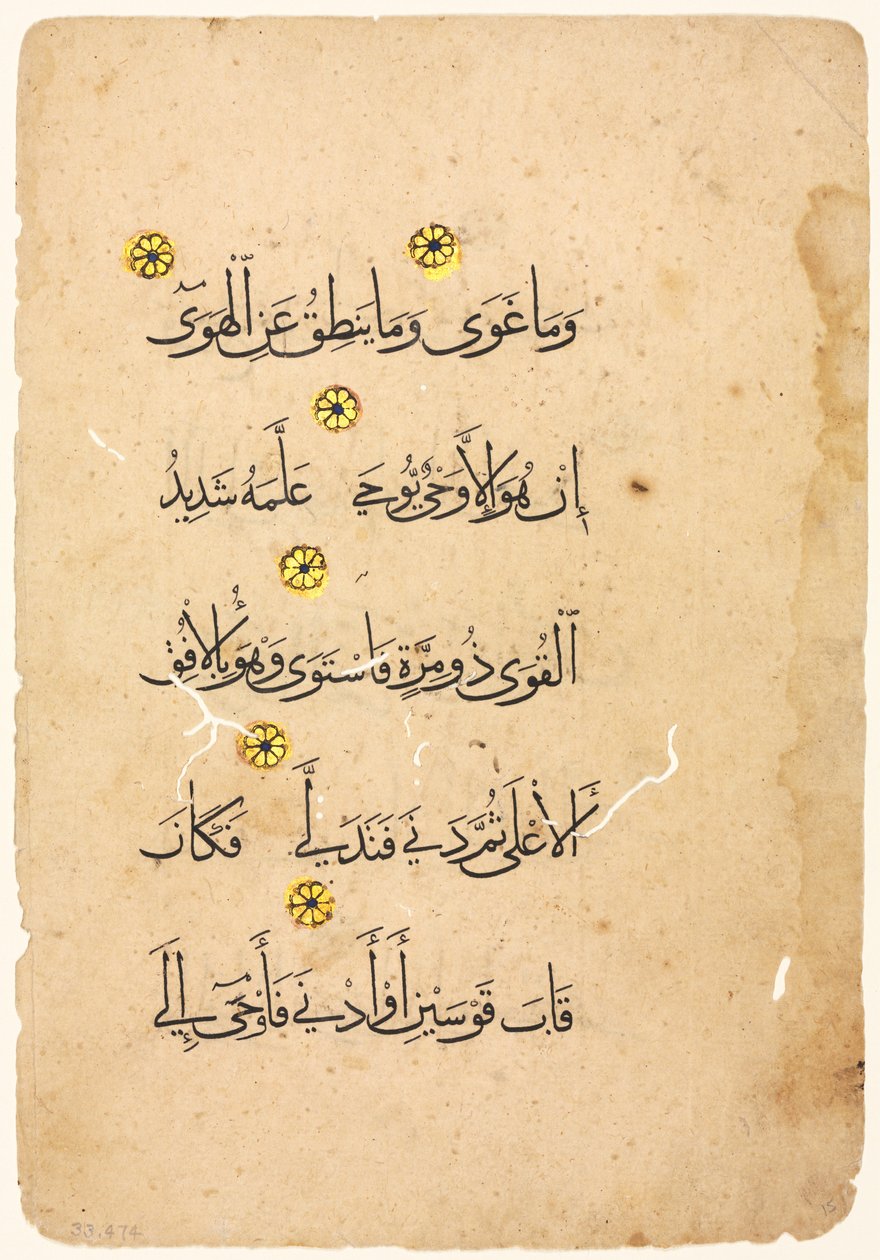 وَمَا غَوَى وَمَا يَنطِقُ عَنِ ٱلْهَوَىٓ
إِنْ هُوَ إِلَّا وَحْىٌ يُّوحَى عَلَّمَهُ شَدِيدُ
ٱلْقُوَى ذُو مِرَّةٍ فَاسْتَوَى وَهْوَ بِالْأُفُقِ
ٱلْأَعْلَى ثُمَّ دَنَى فَتَدَلَّى فَكَانَ
قَابَ قَوْسَيْنِ أَوْ أَدْنَى فَأَوْحَىٓ إِلَى
33.474
15